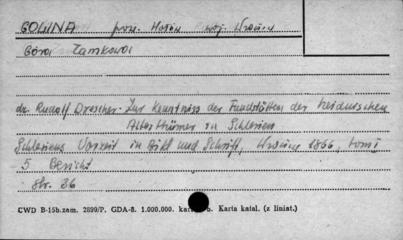 GOLINA pow. Wołów woj. Wrocław
Góra Zamkowa
dr. Rudolf Drescher - Zur Kenntniss der Fundstätten der heidnischen
Alterthümer in Schlesien
Schlesiens Vorzeit in Bild und Schrift, Wrocław 1866, tom I
5 Bericht
Str. 36
CWD B-15b.zam. 2899/P. GDA-8. 1.000.000. Karta katal. (z liniat.)